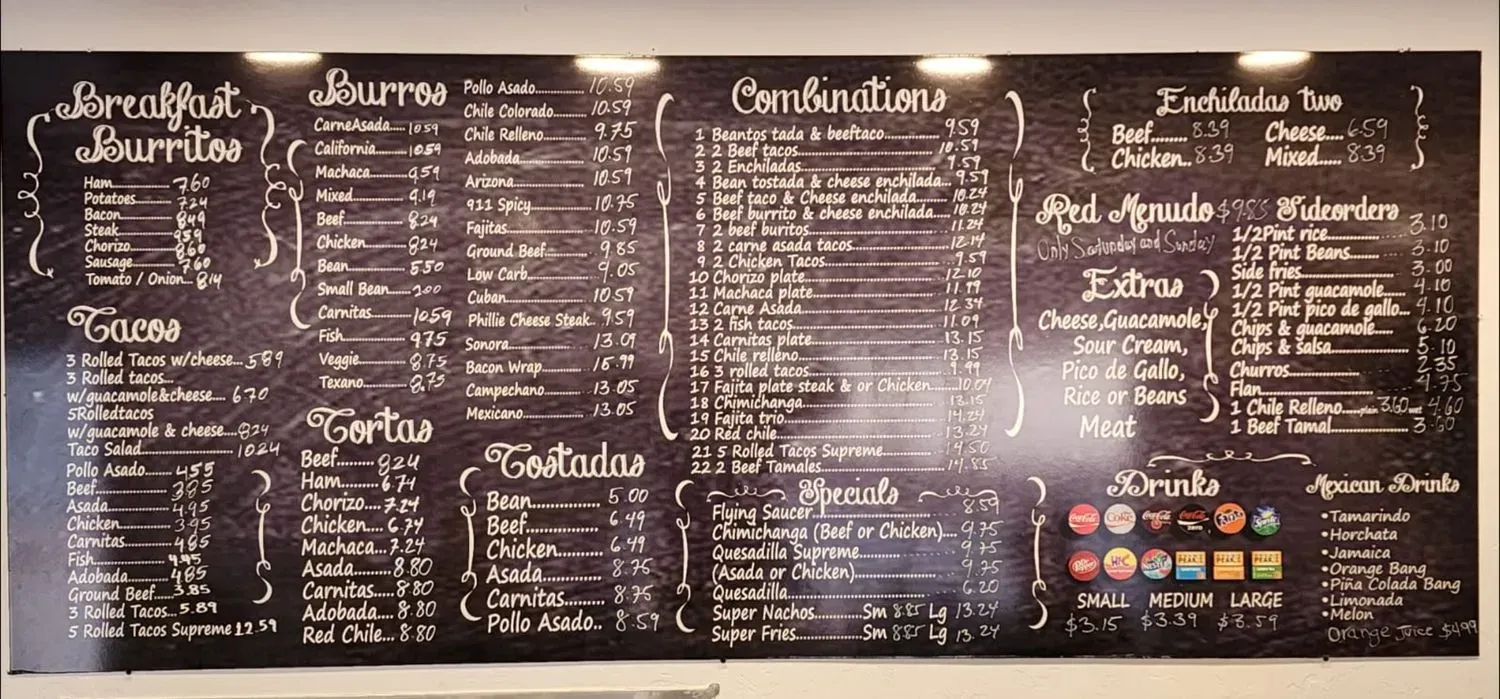 Breakfast
Burritos
Ham 7.60
Potatoes 7.24
Bacon 8.49
Steak 9.59
Chorizo 8.60
Sausage 7.60
Tomato / Onion... 8.14
Tacos
3 Rolled Tacos w/cheese... 5.89
3 Rolled tacos...
w/guacamole&cheese.... 6.70
5Rolledtacos
w/guacamole & cheese.... 8.24
Taco Salad 10.24
Pollo Asado 4.55
Beef 3.85
Asada 4.95
Chicken 3.95
Carnitas 4.85
Fish 4.45
Adobada 4.85
Ground Beef 3.85
3 Rolled Tacos... 5.89
5 Rolled Tacos Supreme 12.59
Burros
CarneAsada.... 10.59
California 10.59
Machaca 9.59
Mixed 9.19
Beef 8.24
Chicken 8.24
Bean 5.50
Small Bean
Carnitas 10.59
Fish 9.75
Veggie 8.75
Texano 8.75
Pollo Asado 10.59
Chile Colorado 10.59
Chile Relleno 9.75
Adobada 10.59
Arizona 10.59
911 Spicy 10.75
Fajitas 10.59
Ground Beef 9.85
Low Carb 9.05
Cuban 10.59
Phillie Cheese Steak.. 9.59
Sonora 13.09
Bacon Wrap 15.99
Campechano 13.05
Mexicano 13.05
Tortas
Beef 8.24
Ham 6.74
Chorizo.... 7.24
Chicken.... 6.74
Machaca... 7.24
Asada 8.80
Carnitas 8.80
Adobada.... 8.80
Red Chile... 8.80
Tostadas
Bean 5.00
Beef 6.49
Chicken 6.49
Asada 8.75
Carnitas 8.75
Pollo Asado.. 8.59
Combinations
1 Beantos tada & beeftaco 9.59
2 2 Beef tacos 10.59
3 2 Enchiladas 9.59
4 Bean tostada & cheese enchilada... 9.59
5 Beef taco & Cheese enchilada 10.24
6 Beef burrito & cheese enchilada 10.24
7 2 beef buritos 11.24
8 2 carne asada tacos 12.14
9 2 Chicken Tacos 9.59
10 Chorizo plate 12.10
11 Machaca plate 11.99
12 Carne Asada 12.34
13 2 fish tacos 11.09
14 Carnitas plate 13.15
15 Chile relleno 13.15
16 3 rolled tacos 9.99
17 Fajita plate steak & or Chicken 10.04
18 Chimichanga 13.15
19 Fajita trio 14.24
20 Red chile 13.24
21 5 Rolled Tacos Supreme 14.50
22 2 Beef Tamales 14.85
Specials
Flying Saucer 8.59
Chimichanga (Beef or Chicken).... 9.75
Quesadilla Supreme 9.75
(Asada or Chicken) 9.75
Quesadilla 6.20
Super Nachos Sm 8.85 Lg 13.24
Super Fries Sm 8.85 Lg 13.24
Enchiladas two
Beef 8.39 Cheese.... 6.59
Chicken.. 8.39 Mixed 8.39
Red Menudo $9.85
Only Saturday and Sunday
Extras
Cheese,Guacamole,
Sour Cream,
Pico de Gallo,
Rice or Beans
Meat
Sideorders
1/2Pint rice 3.10
1/2 Pint Beans 3.10
Side fries 3.00
1/2 Pint guacamole 4.10
1/2 Pint pico de gallo... 4.10
Chips & guacamole 6.20
Chips & salsa 5.10
Churros 2.35
Flan 4.75
1 Chile Relleno plain 3.60 4.60
1 Beef Tamal 3.60
Drinks
Coca-Cola Coke Coca-Cola Coca-Cola Zero Fanta Sprite
Dr Pepper Hi-C Nestea Peace Peace Peace
SMALL MEDIUM LARGE
$3.15 $3.39 $3.59
Mexican Drinks
•Tamarindo
•Horchata
•Jamaica
•Orange Bang
•Piña Colada Bang
•Limonada
•Melon
Orange Juice $4.99